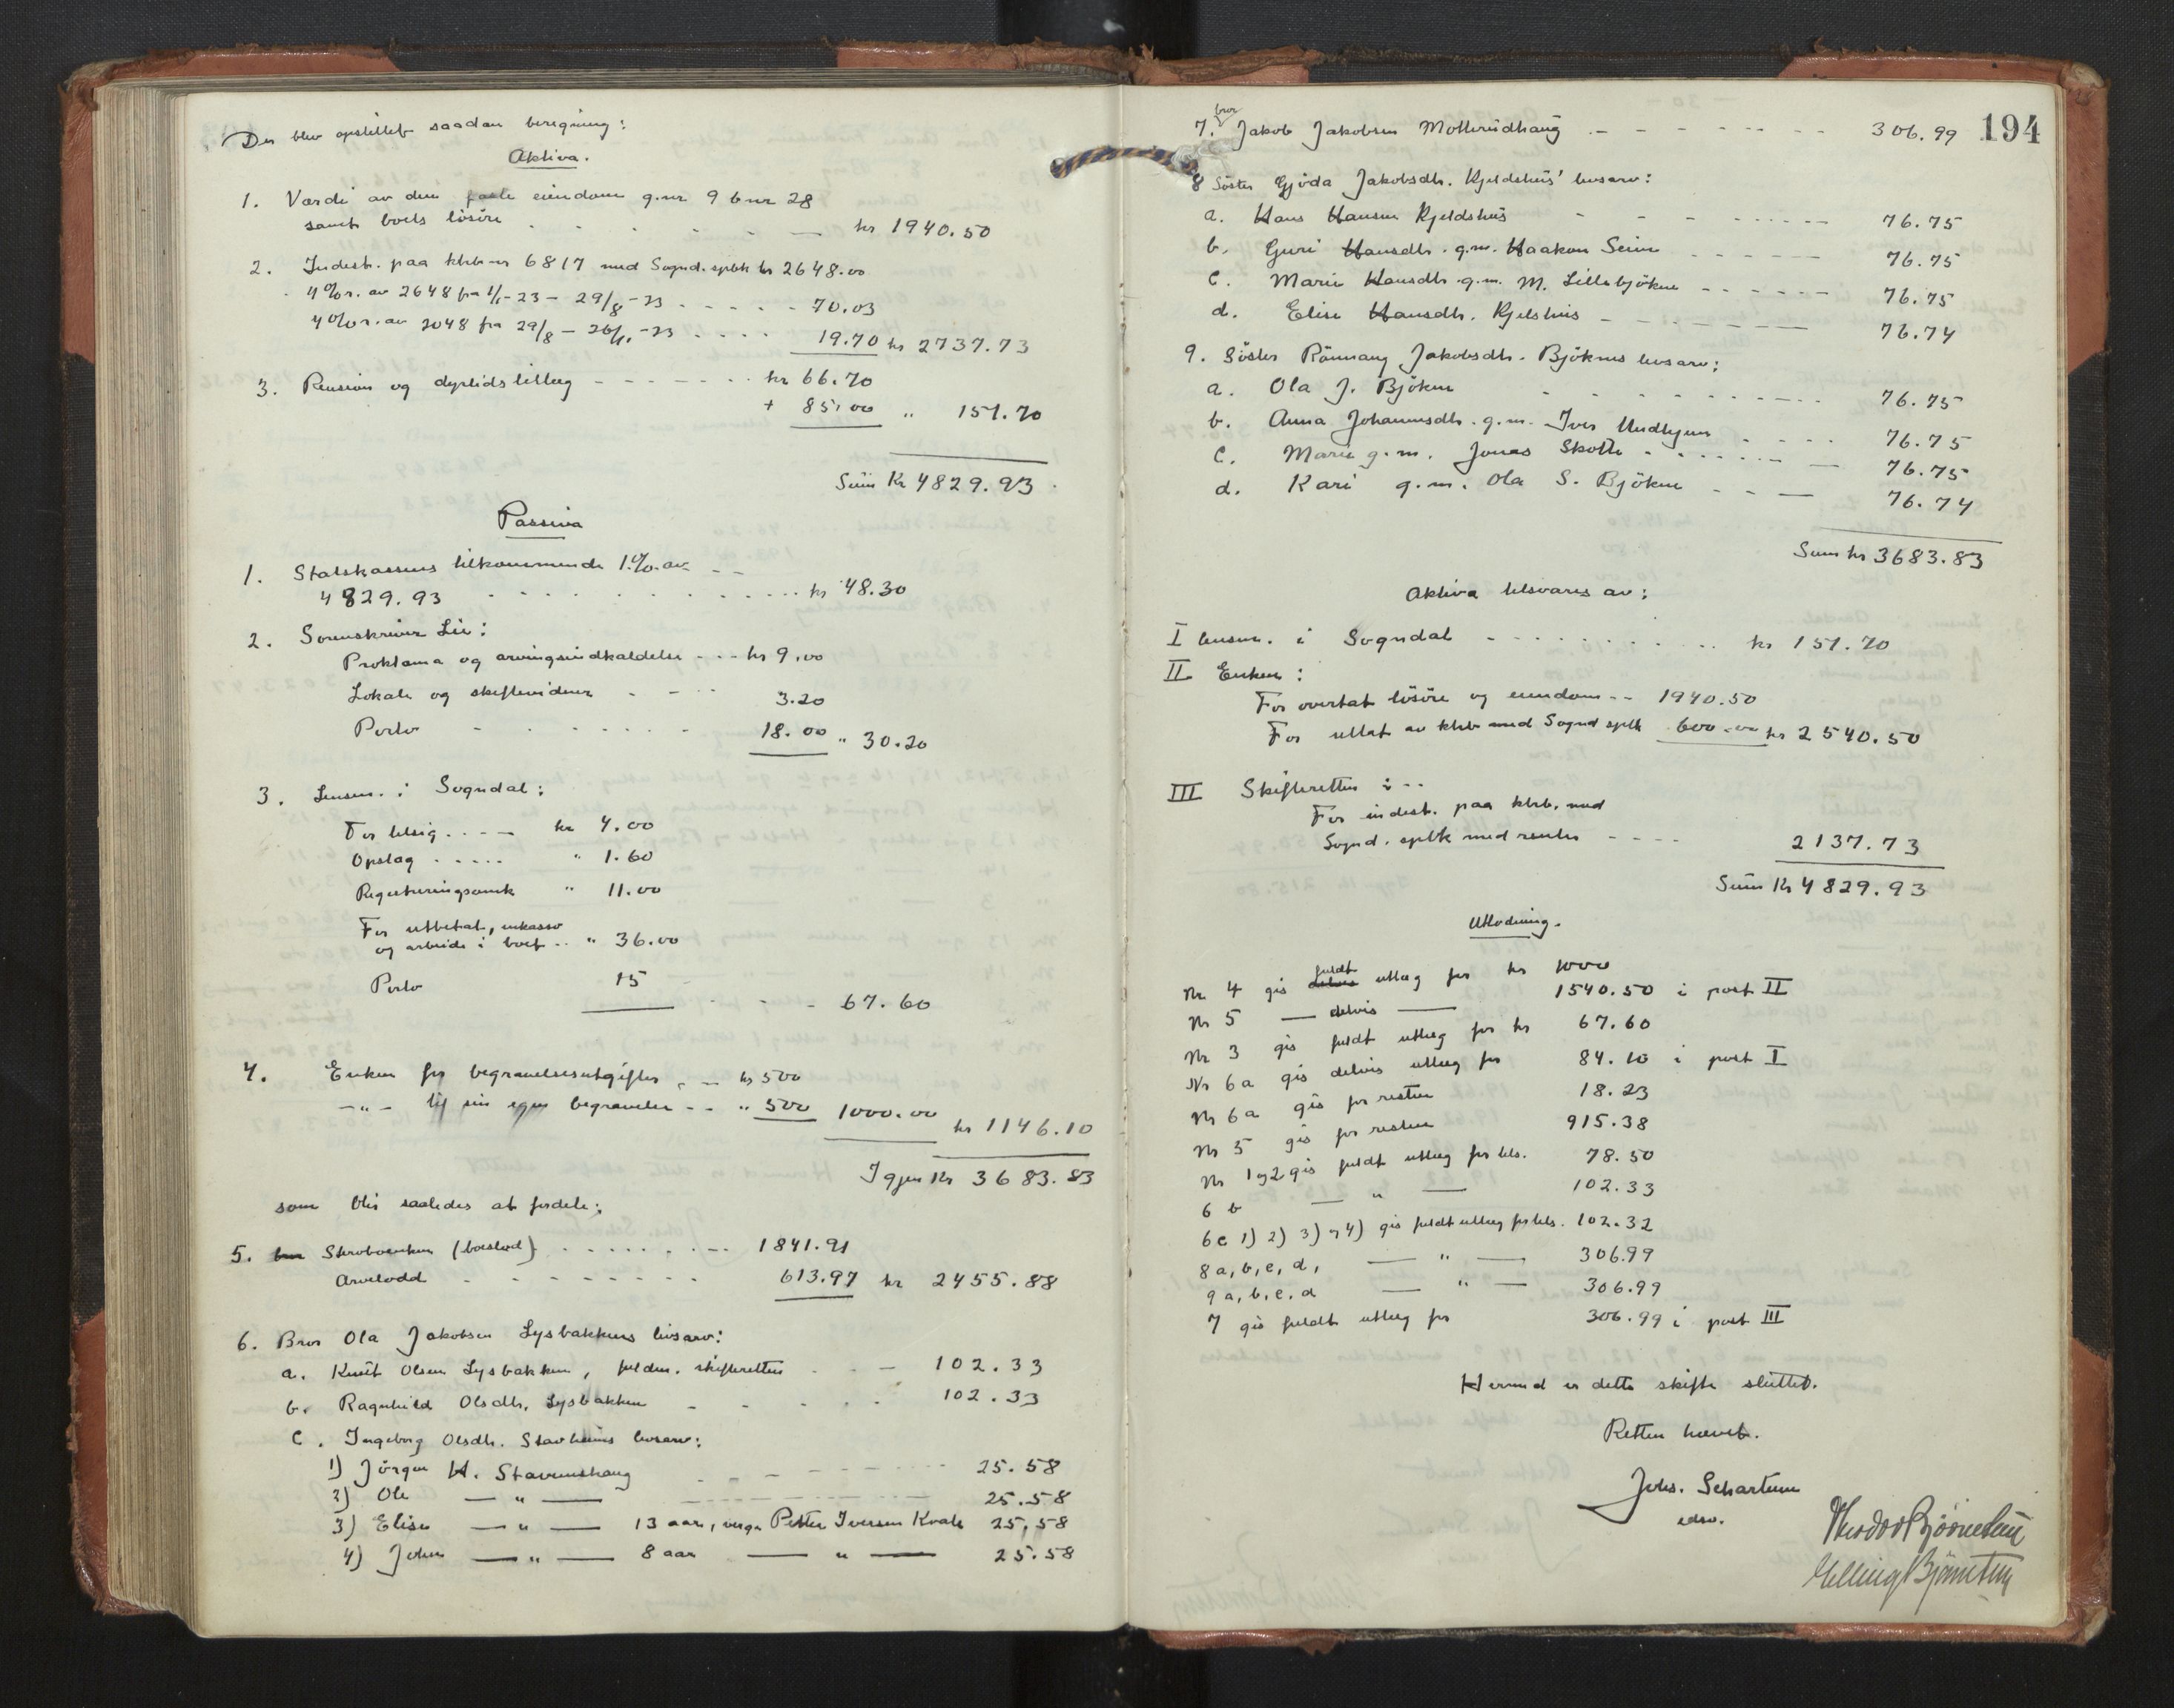 Der blev opstillet saadan beregning:
Aktiva.
1. Værdi av den faste eiendom g.nr 9 bnr 28
samt boets lösöre . . . . . — kr 1940.50
2. Indest. paa kbb-nr 6817 med Sognd. spbk kr 2648.00
4% r. av 2648 fra 1/1-23 - 29/8-23 - - - - - 70.03
4% r. av 2048 fra 29/8 - 26/11-23 . . . . 19.70 kr 2737.73
3. Pension og dyrtidstillæg - - - - - - . . kr 66.70
+ 85.00 " 151.70
Sum Kr 4829.93
Passiva
1. Statskassens tilkommende 1% av - -
4829.93 . . . . . . . . . . kr 48.30
2. Sorenskriver Lie:
Proklama og arvingsindkaldelse - - - kr 9.00
Lokale og skiftevidner . - . . 3.20
Porto - . . . . . 18.00 " 30.20
3. Lensm. i Sogndal:
For tilsig. . - - — kr 4.00
Opslag . . . . . " 1.60
Registreringsomk " 11.00
For utbetal, inkasso
og arbeide i boet . . " 36.00
Porto 15 - - - 67.60
4. Enken for begravelsesutgifter . — kr 500
—"— til sin egen begravelse - - " 500 1000.00 kr 1146.10
Igjen Kr 3683.83
som blir saaledes at fordele:
5. Skroboenken (boeslod) . . . . . . . - - 1841.91
Arvelodd - - - - - - - - 613.97 kr 2455.88
6. Bror Ola Jakobsen Lysbakkens livsarv:
a. Knut Olsen Lysbakken, fuldm. skifteretten . . — 102.33
b. Ragnhild Olsdtr. Lysbakken - - . . . 102.33
c. Ingeborg Olsdtr. Stavheims livsarv:
1) Jörgen H. Stavnushaug . - — - - - - - 25.58
2) Ole — " — - - - - - - - - 25.58
3) Elise — " — 13 aar, verge Petter Iversen Kvale 25.58
4) Johan — " — 8 aar — " — 25.58
194
bror
7. Jakob Jakobsen Mollerudhaug . — - - - - - - - 306.99
8 Söster Gjöda Jakobsdtr. Kjeldshus' livsarv:
a. Hans Hansen Kjeldshus - - - - - - - - 76.75
b. Guri Hansdtr. g.m. Haakon Seim - - - - - - 76.75
c. Marie Hansdtr. g.m. M. Lillebjökne - - - - - - 76.75
d. Elise Hansdtr. Kjelshus - - - - - - - 76.74
9. Söster Rönnaug Jakobsdtr. Bjöknes livsarv:
a. Ola J. Bjökne - - - - - - - - 76.75
b. Anna Johannesdtr. g.m. Iver Undhjem . . . . 76.75
c. Marie g.m. Jonas Skotte . . . . . . — — 76.75
d. Kari g.m. Ola S. Bjökne - - — 76.74
Sum kr 3683.83
Aktiva tilsvares av:
I lensm. i Sogndal - - - - - - - - . . kr 151.70
II Enken:
For overtat lösöre og eiendom - - 1940.50
For uttat av kbb med Sognd spbk 600.00 kr 2540.50
III Skifteretten i - -
For indest. paa kbb. med
Sognd. spbk med renter - - - - 2137.73
Sum Kr 4829.93
Utlodning.
fuldt
Nr 4 gis delvis utlæg for kr 1000
Nr 5 — delvis — 1540.50 i post II
Nr 3 gis fuldt utlæg for kr 67.60
Nr 6a gis delvis utlæg for 84.10 i post I
Nr 6a gis for resten 18.23
Nr 5 gis for resten 915.38
Nr 1 og 2 gis fuldt utlæg for tils. 78.50
6 b — " — 102.33
6c 1) 2) 3) og 4) gis fuldt utlæg for tils. 102.32
8 a, b, c, d, — " — 306.99
9 a, b, c, d — " — 306.99
7 gis fuldt utlæg for 306.99 i post III
Hermed er dette skifte sluttet.
Retten hævet.
Johs. Schartum
edsv.
Theodor Bjørnetun
Elling Bjørnetun